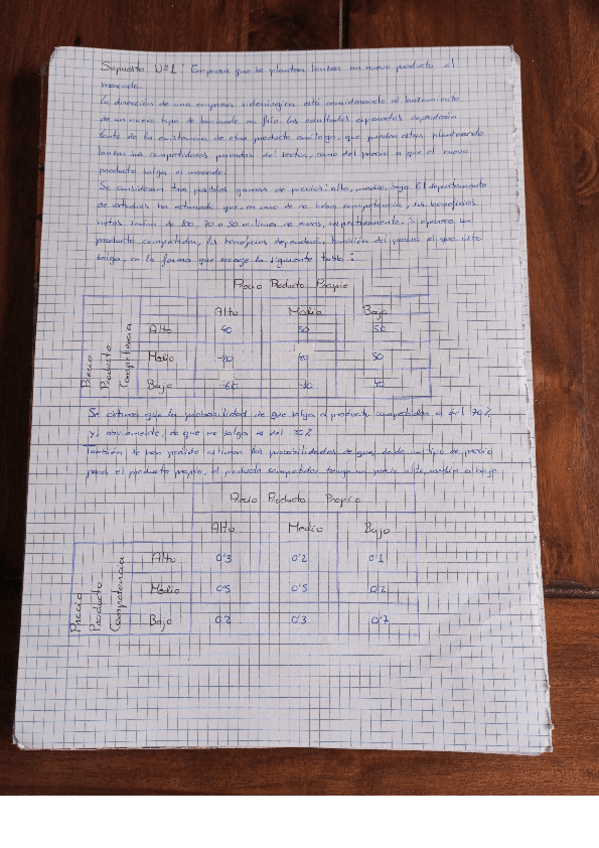 Supuesto Nº1: Empresa que se plantea lanzar un nuevo producto al
mercado.
La dirección de una empresa siderúrgica está considerando el lanzamiento
de un nuevo tipo de laminado en frío. Los resultados esperados dependerán
tanto de la existencia de otro producto análogo, que puedan estar planteando
lanzar sus competidores del sector, como del precio a que el nuevo
producto salga al mercado.
Se consideran tres posibles gamas de precios: alto, medio, bajo. El departamento
de estudios ha estimado que, en caso de no haber competencia, los beneficios
netos serían de 100, 70 o 50 millones de euros, respectivamente. Si aparece un
producto competidor, los beneficios dependerán también del precio al que éste
salga, en la forma que recoge la siguiente tabla:
Precio Producto Propio
Alto Medio Bajo
Precio Producto Competencia
Alto 40 50
Medio 50
Bajo
Se estima que la probabilidad de que salga el producto competidor es del 70%
y, obviamente, de que no salga es del
También se han podido estimar las probabilidades de que, dado un tipo de precio
para el producto propio, el producto competidor tenga un precio alto, medio o bajo
Precio Producto Propio
Alto Medio Bajo
Precio Producto Competencia
Alto 0'3 0'2 0'1
Medio 0'5 0'5 0'2
Bajo 0'2 0'3 0'7